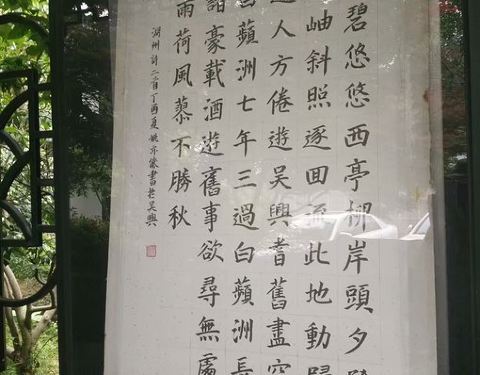 碧悠悠西亭柳岸頭夕
岫斜照逐回流此地動歸
人方倦遊吳興耆舊盡空
蘋洲七年三過白蘋洲長
諸豪載酒遊舊事欲尋無處
雨荷風蓼不勝秋
湖州詩二首丁酉夏姚書於吳興